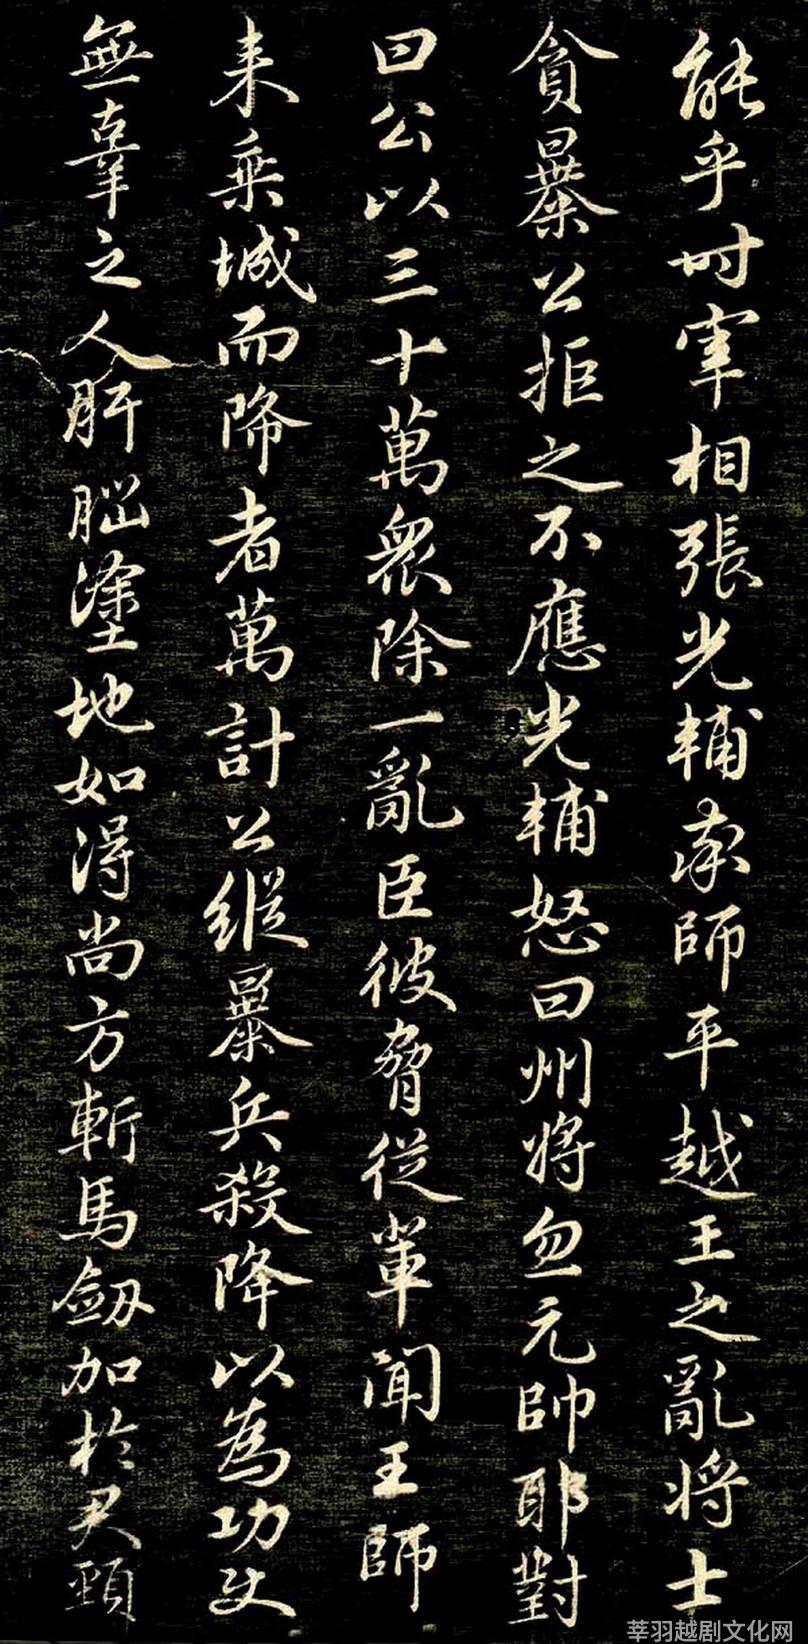 能乎时宰相張光輔率師平越王之亂将士
貪暴公拒之不應光輔怒曰州将忽元帥耶對
曰公以三十萬衆除一亂臣彼脅從輩聞王師
来乘城而降者萬計公縱暴兵殺降以為功使
無辜之人肝腦塗地如得尚方斬馬劔加於君頸
莘羽越剧文化网